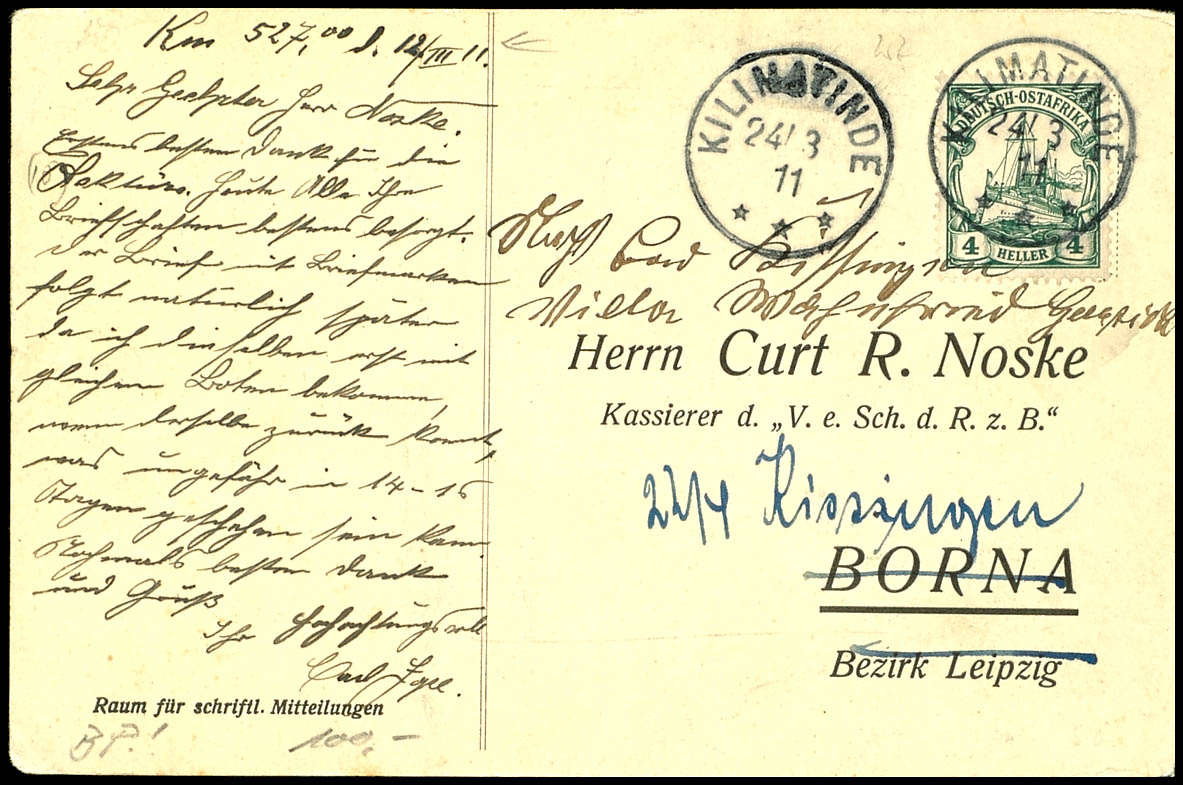 Km 527,00 d. 12/III 11.
Sehr Geehrter Herr Noske.
Erstens besten Dank für die
Faktura. Heute Alle Ihre
Briefschaften bestens besorgt.
Der Brief mit Briefmarken
folgt natürlich später
da ich dieselben erst mit
gleichem Boten bekomme,
wenn derselbe zurück kommt,
was ungefähr in 14-15
Tagen geschehen sein kann.
Nochmals besten Dank
und Gruß
Ihr Hochachtungsvoll
Carl
Raum für schriftl. Mitteilungen
BP!
100,-
KILIMATINDE
24/3
11
KILIMATINDE
24/3
11
DEUTSCH-OSTAFRIKA
4 HELLER 4
Nach Bad Kissingen
Villa Wahnfried
Herrn Curt R. Noske
Kassierer d. „V. e. Sch. d. R. z. B.“
22/4 Kissingen
BORNA
Bezirk Leipzig